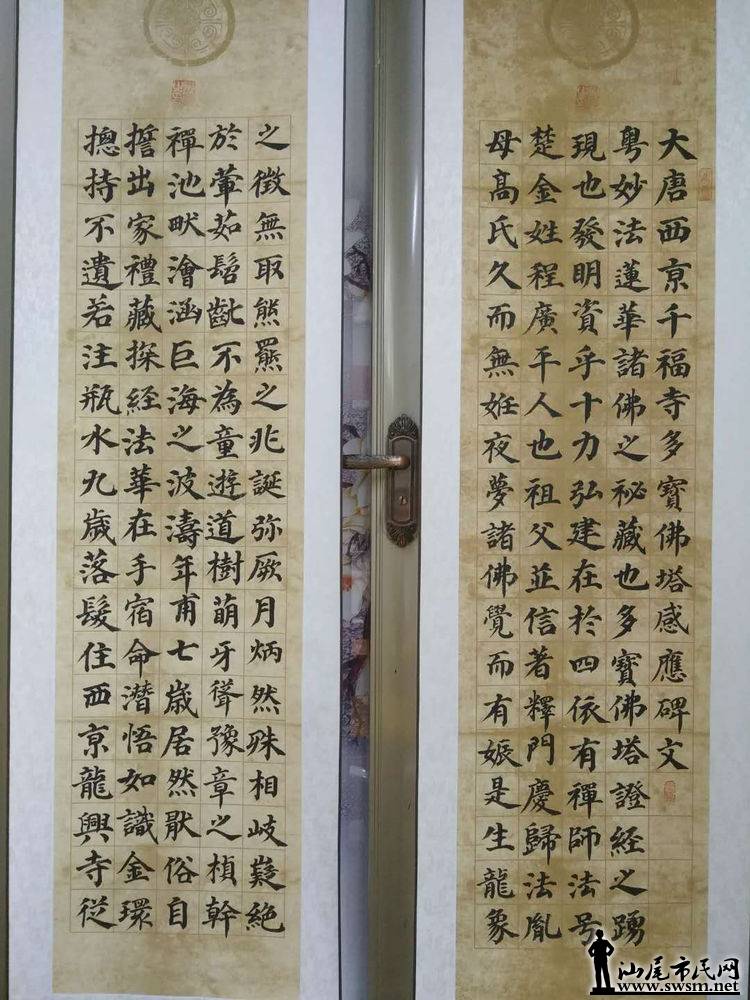 大唐西京千福寺多寶佛塔感應碑文
粵妙法蓮華諸佛之祕藏也多寶佛塔證經之踴
現也發明資乎十力弘建在於四依有禪師法号
楚金姓程廣平人也祖父並信著釋門慶歸法胤
母髙氏久而無姙夜夢諸佛覺而有娠是生龍象
之徵無取熊羆之兆誕弥厥月炳然殊相岐嶷絕
於葷茹髫齔不為童遊道樹萌牙聳豫章之楨幹
禪池畎澮涵巨海之波濤年甫七歲居然猒俗自
誓出家禮藏探經法華在手宿命潛悟如識金環
揔持不遺若注瓶水九歲落髮住西京龍興寺從
汕尾市民网
www.swsm.net